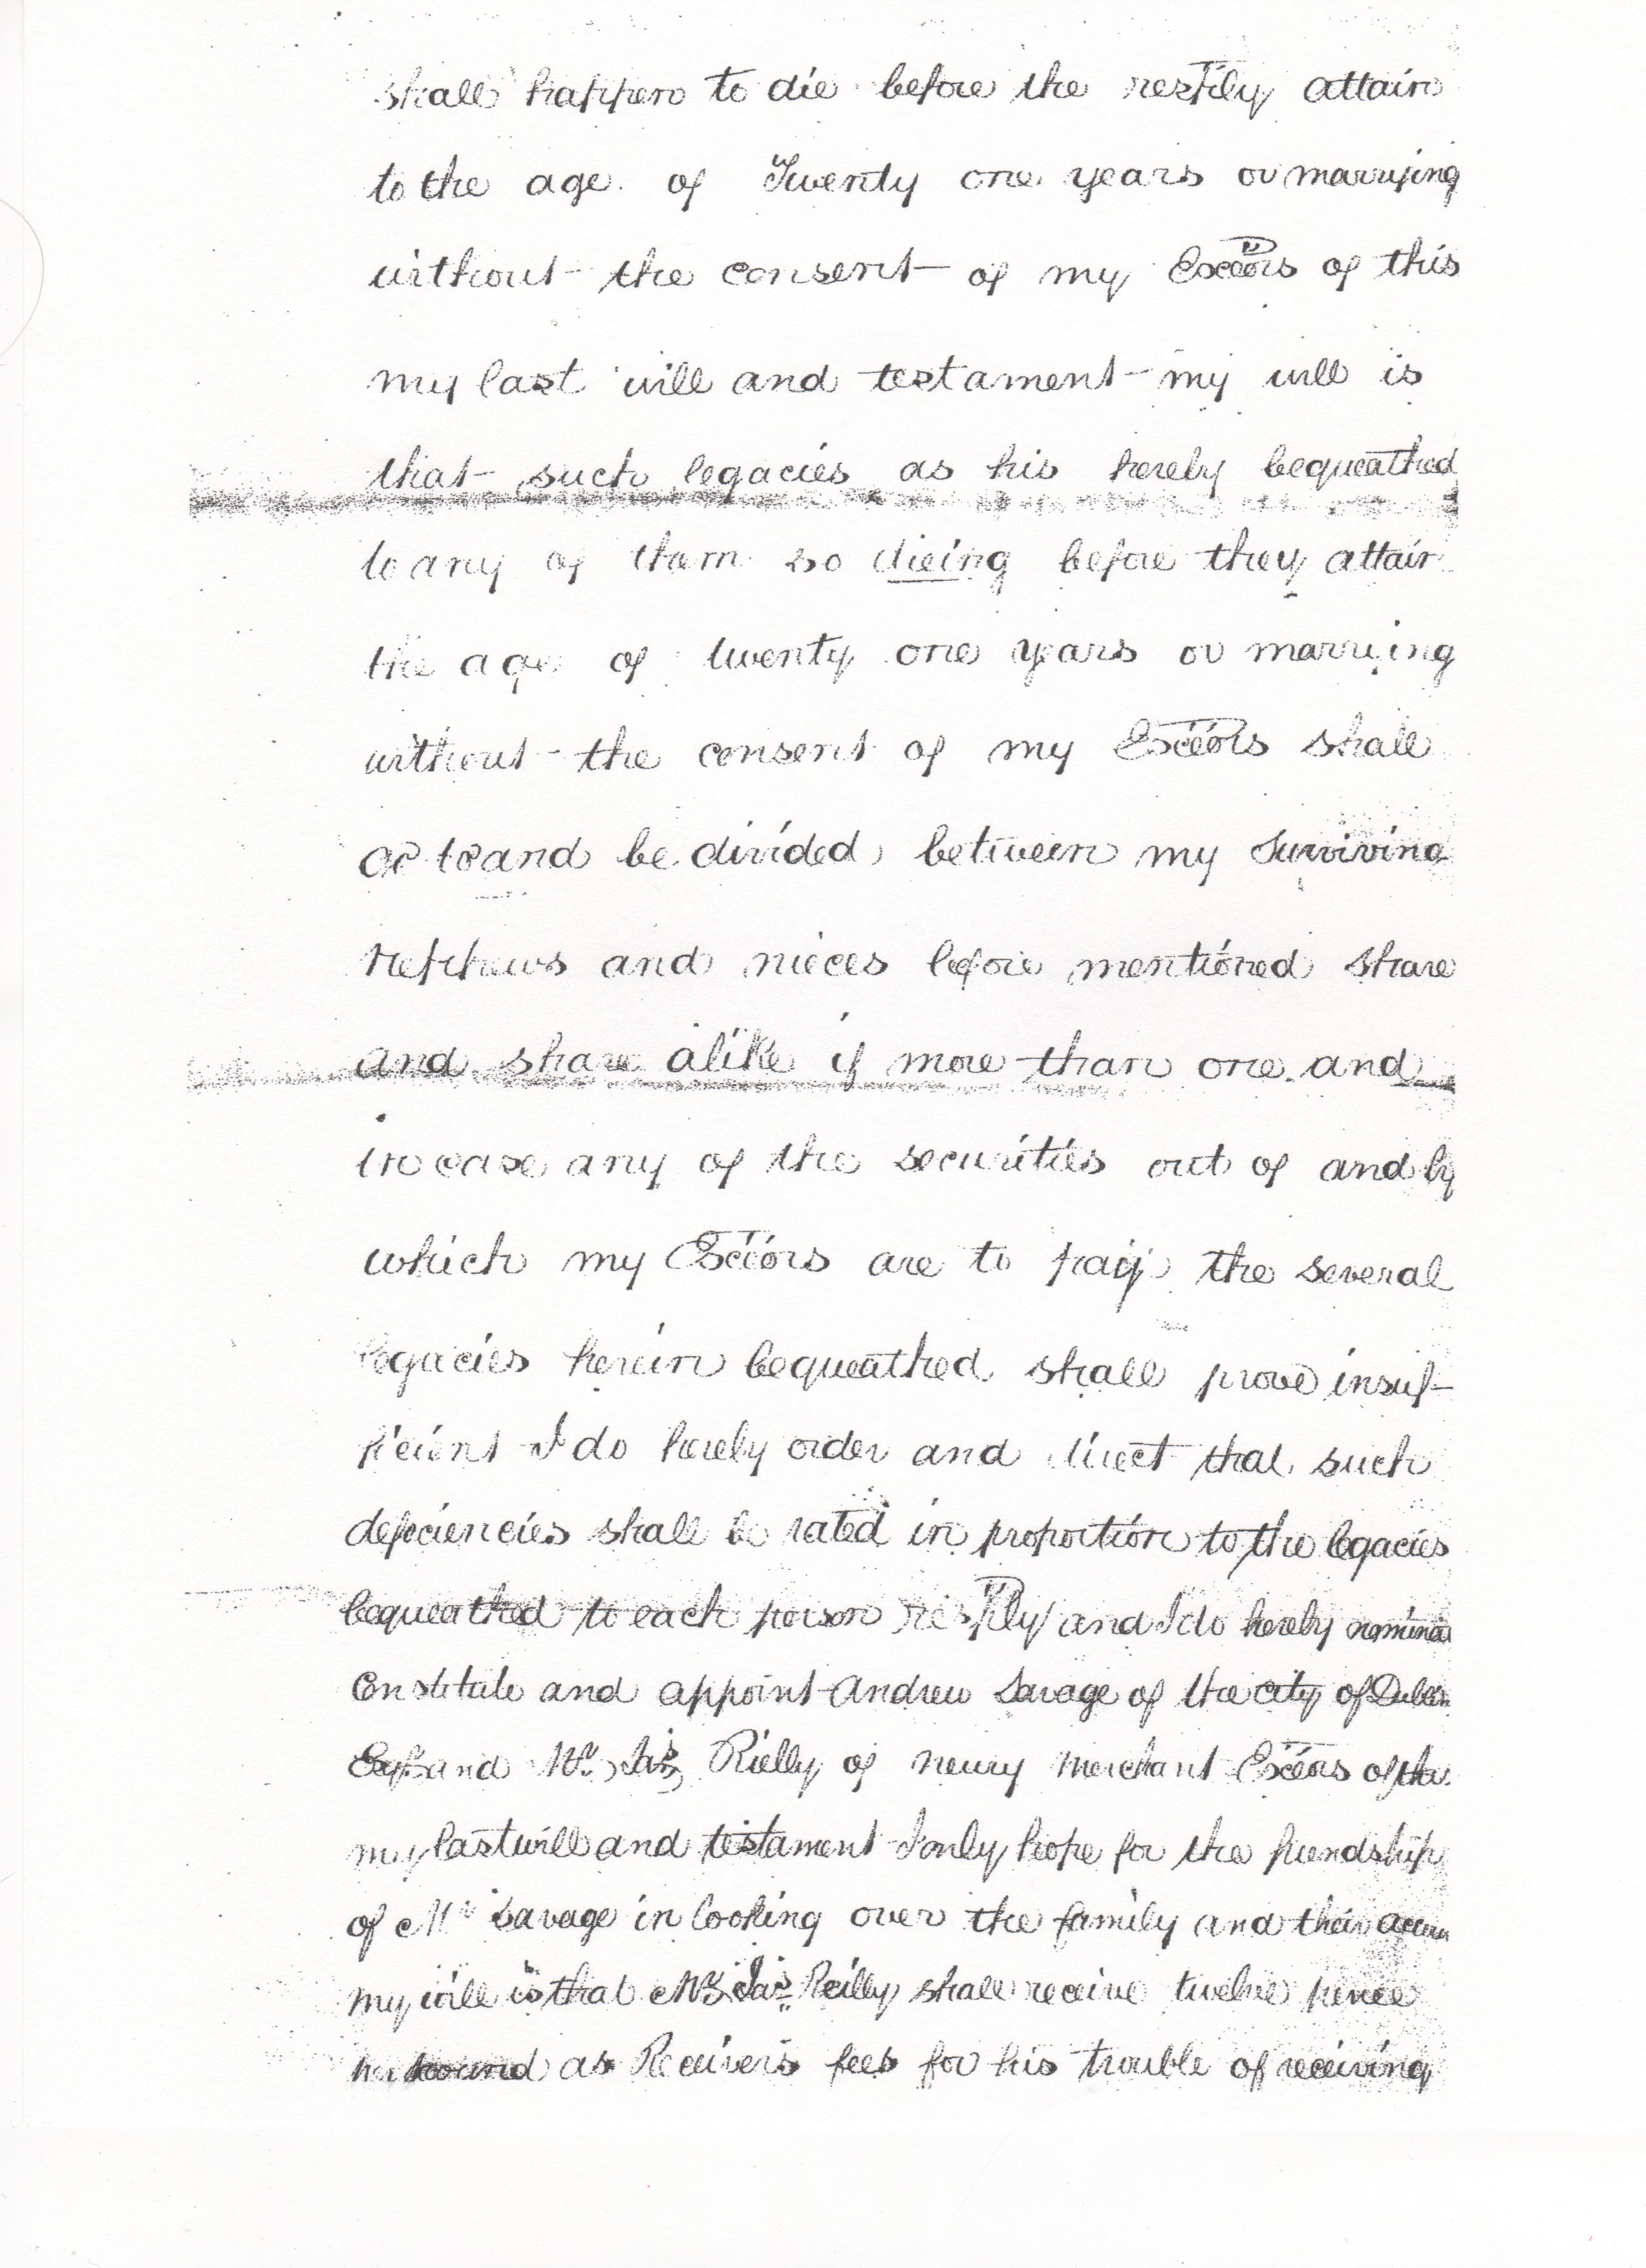 shall happen to die before the resptly attain
to the age of Twenty one years or marrying
without the consent of my Excors of this
my last will and testament my will is
that such legacies as his hereby bequeathed
to any of them so dieing before they attain
the age of twenty one years or marrying
without the consent of my Exceors shall
and be divided between my surviving
nephews and nieces before mentioned share
and share alike if more than one and
in case any of the securities out of and by
which my Exceors are to pay the several
legacies herein bequeathed shall prove insuf-
ficient I do hereby order and direct that such
defeciencies shall be rated in proportion to the legacies
bequeathed to each person resptly and I do hereby nomina
Constitute and appoint Andrew Savage of the city of Dublin
Esqr and Mr Jas Rielly of Newry Merchant Exceors of this
my last will and testament I only hope for the friendship
of Mr Savage in looking over the family and their
my will is that Mr Jas Reilly shall receive twelve pence
as Receivers fees for his trouble of receiving